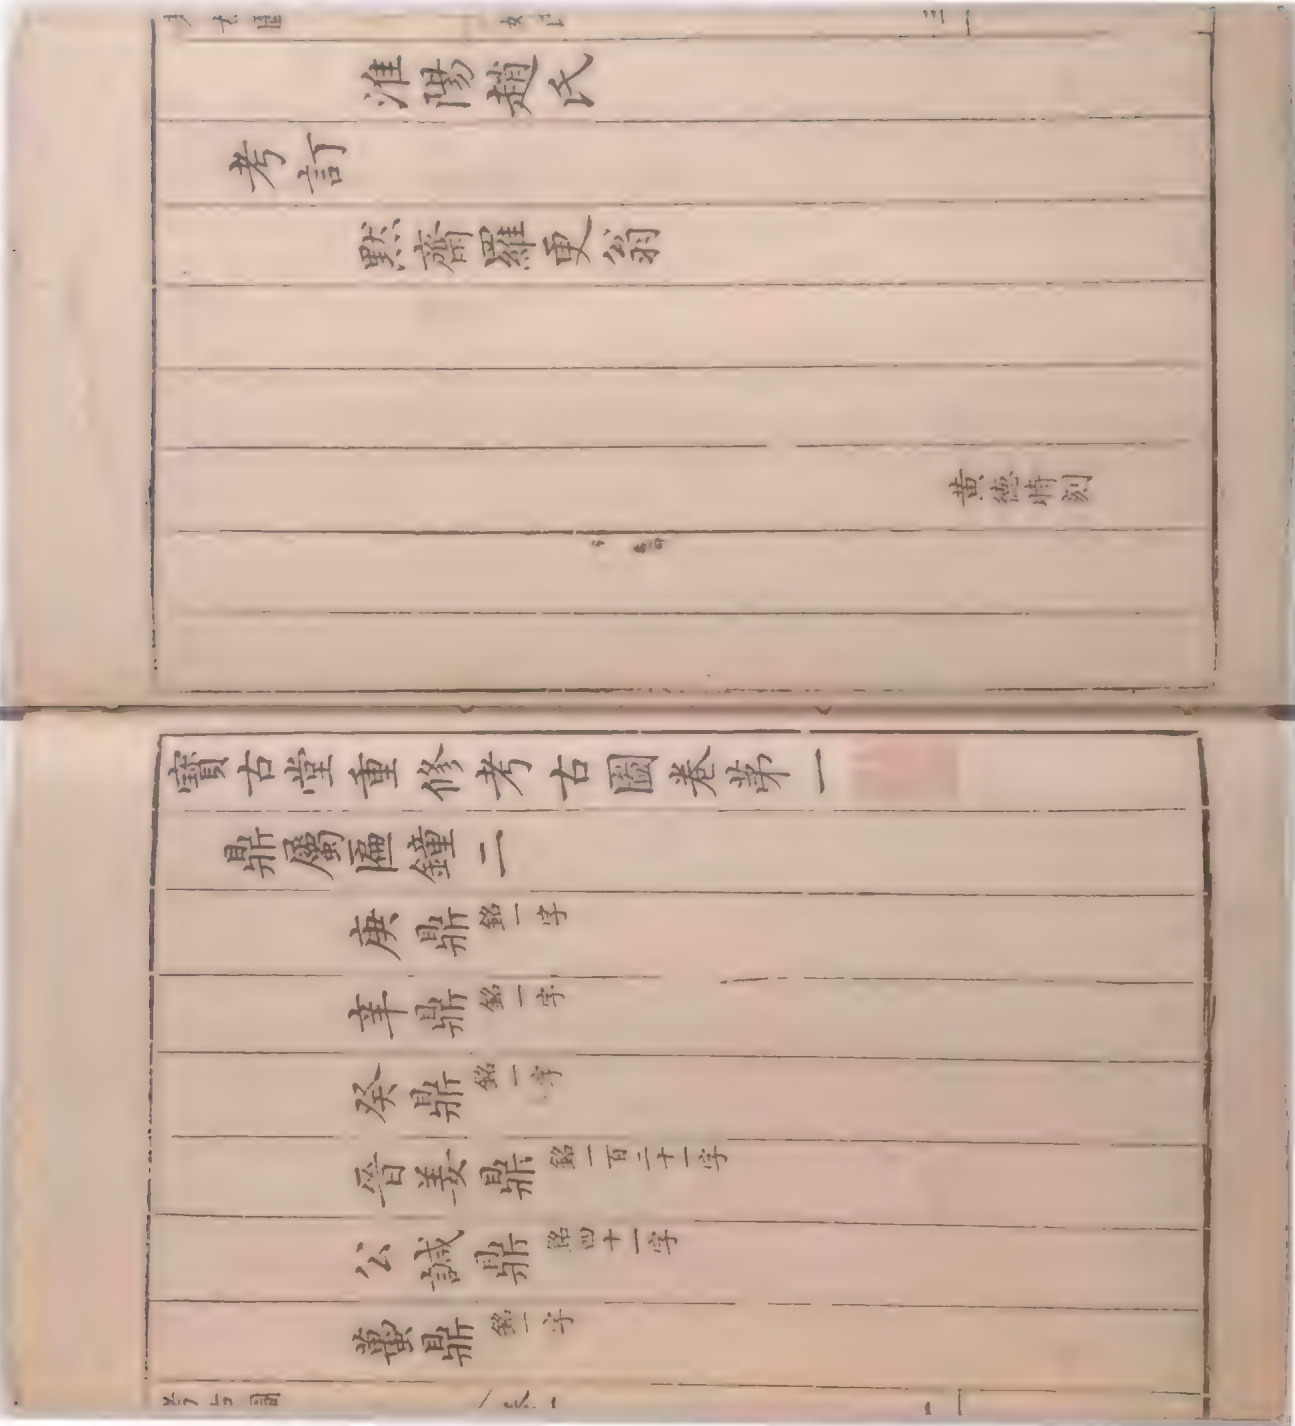 淮陽趙氏
考訂
默齋羅更翁
黃德時刻
寶古堂重修考古圖卷第一
鼎屬匜鐘二
庚鼎 銘一字
辛鼎 銘一字
癸鼎 銘一字
晉姜鼎 銘一百二十一字
公諴鼎 銘四十一字
蠆鼎 銘一字
考古圖
一